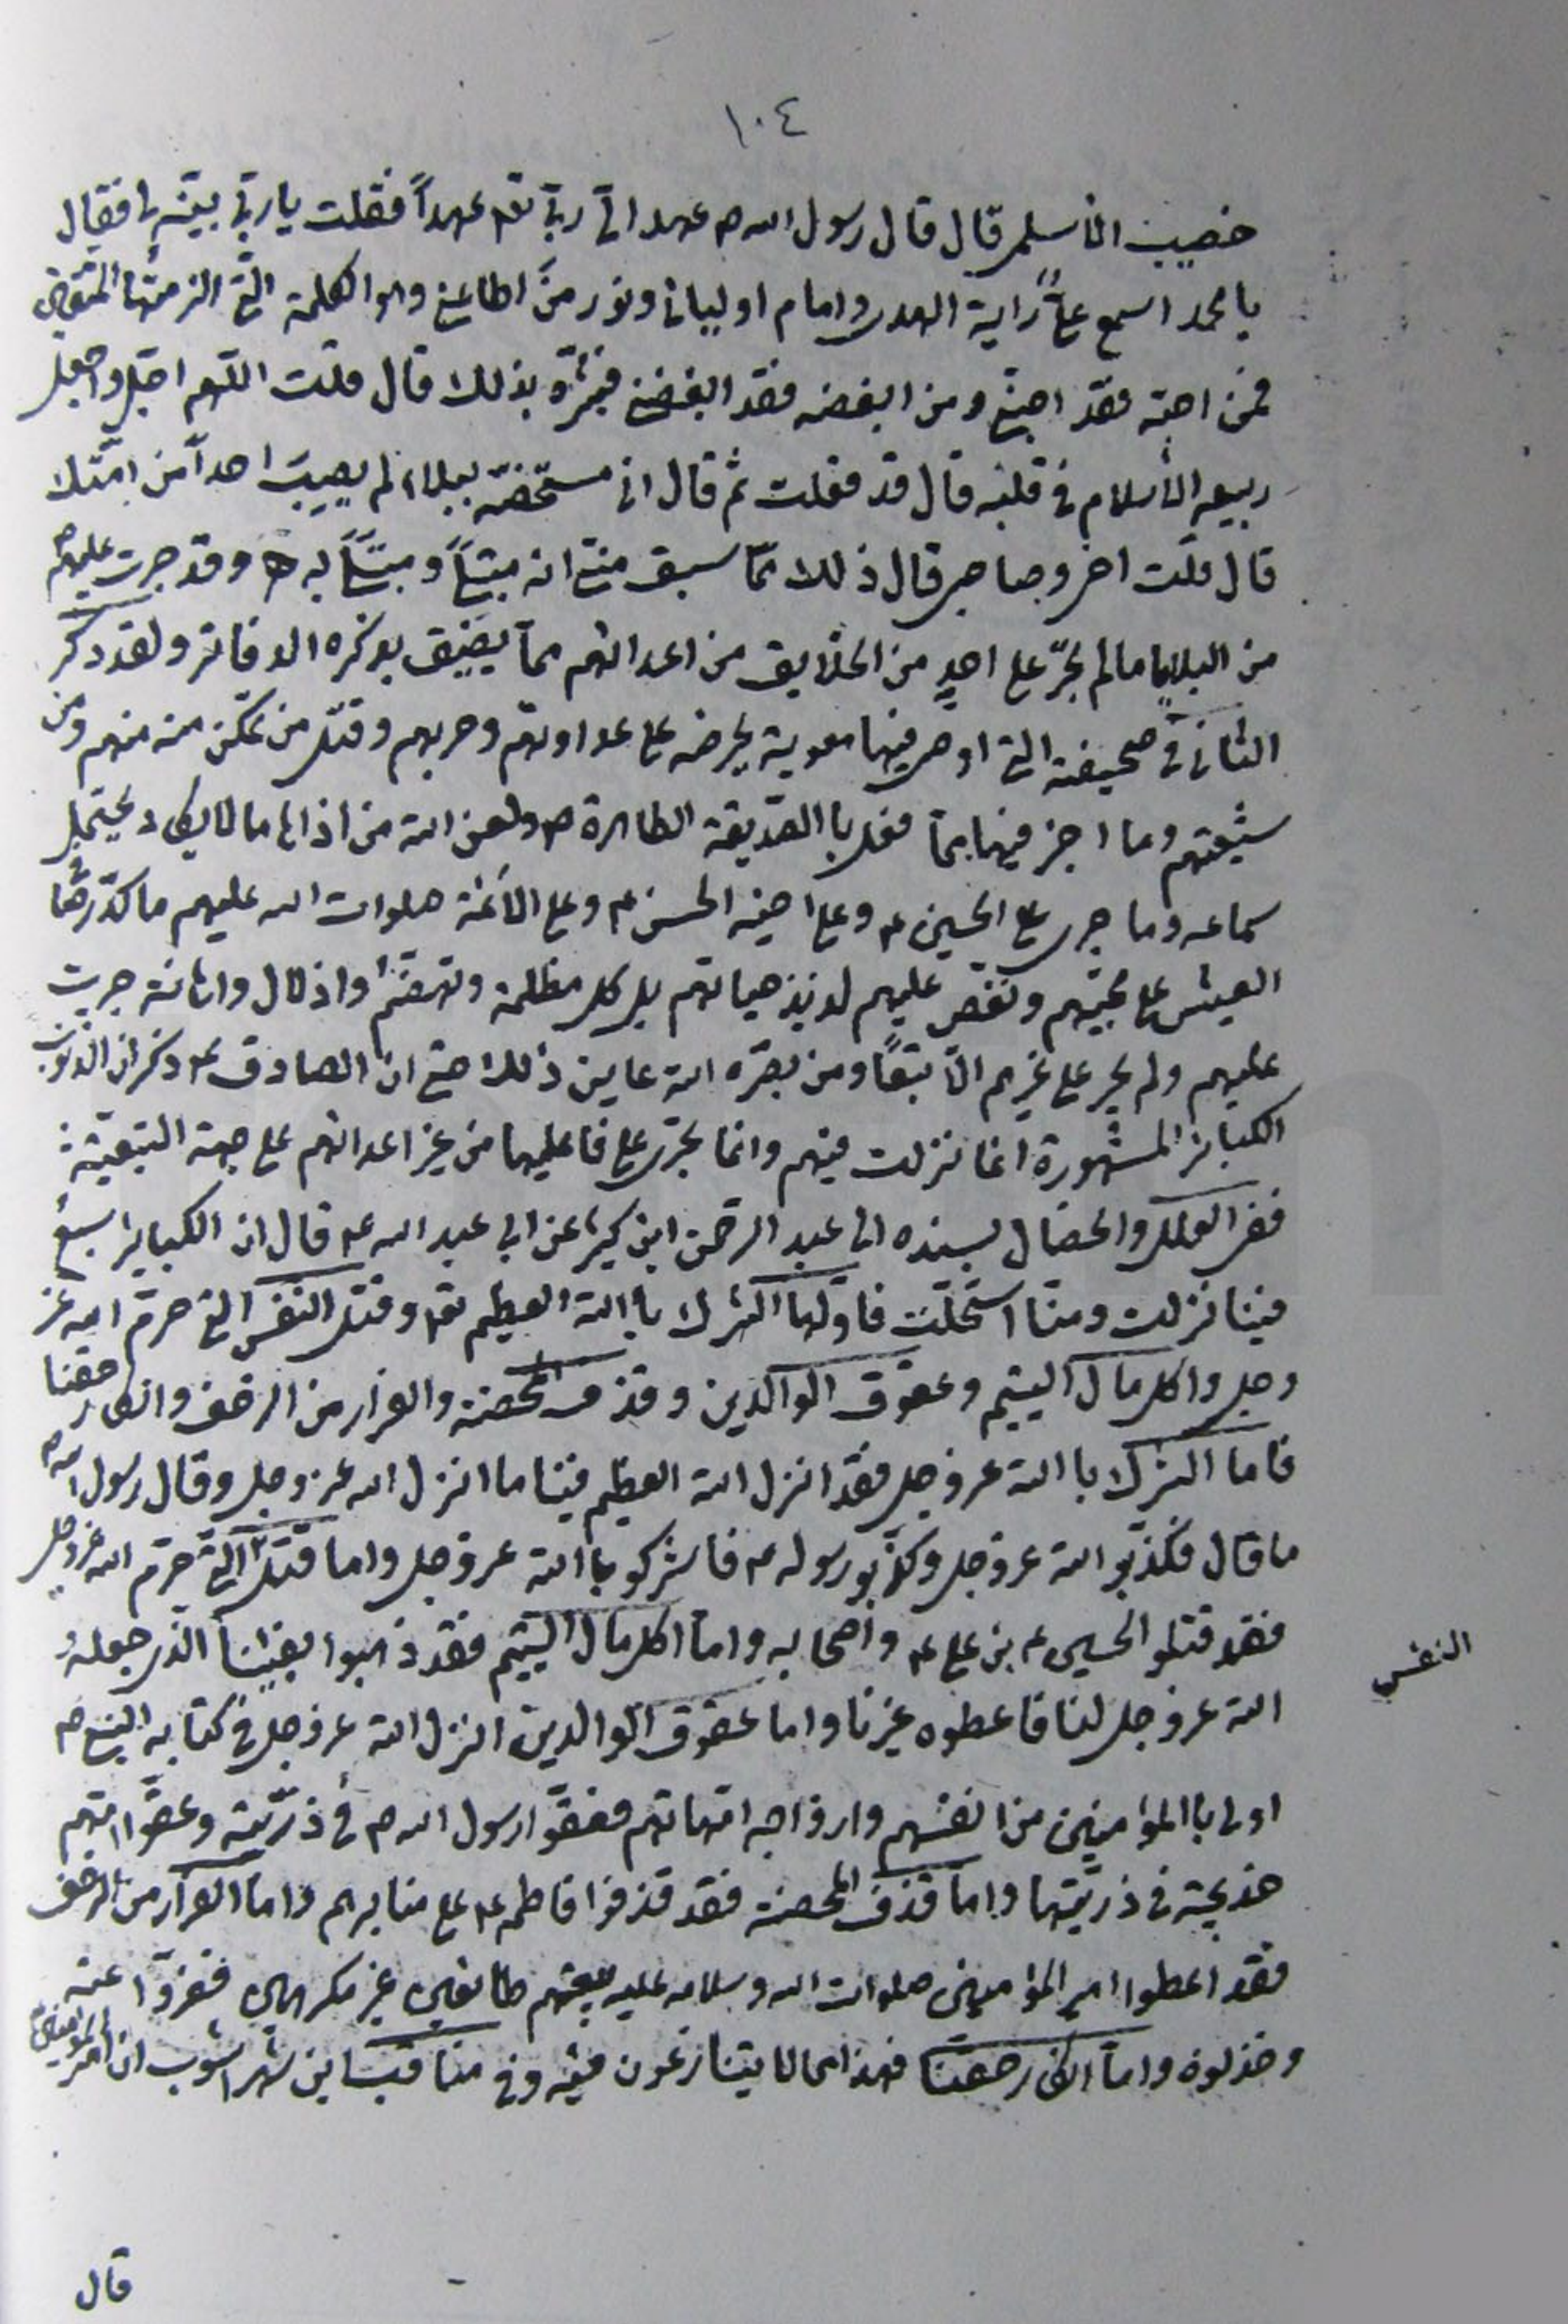 ١٠٤
خصيب الأسلمى قال قال رسول الله ص عهد الىّ ربّى تع عهداً فقلت يا ربّى بيّنه لى فقال
يا محمد اسمع علىّ راية الهدى وامام اوليائى ونور منَ اطاعنى وهو الكلمة الّتى الزمتها المتّقين
فمن احبّه فقد احبّنى ومن ابغضه فقد ابغضنى فبشّره بذلك قال قلت اللّهم اجل واجعل
ربيعه الأسلام فى قلبه قال قد فعلت ثم قال انى مستخصّه ببلاء لم يصيب احداً من امّتك
قال قلت اخى وصاحبى قال ذلك ممّا سبق منّى انه مبتلىً ومبتلىً به وقد جرت عليهم
من البلايا ما لم يجرّ على احدٍ من الخلايق من اعدائهم ممّا يضيق بذكره الدفاتر ولقد ذكر
الثانى فى صحيفته التى اوصى فيها معوية يحرضه على عداوتهم وحربهم وقتل من تمكّن منه منهم ومن
شيعتهم وما اجز فيها بما فعل باالصّديقة الطاهرة ص ولعن الله من اذاها ما لا يكاد يحتمل
سماعه وما جرى على الحسين ع وعلى اخيه الحسن ع وعلى الأئمة صلوات الله عليهم ما كدّر هنا
العيش على محبّيهم ونغص عليهم لذيذ حياتهم بل كل مظلمة وتهضّم واذلال واهانة جريت
عليهم ولم يجر على غيرهم الّا تبعاً ومن بصّره الله عاين ذلك حتى ان الصادق ع ذكر ان الذنوب
الكبائر المشهورة انما نزلت فيهم وانما يجرى على فاعليها من غير اعدائهم على جهة التبعيّة
ففى العلل والخصال بسنده الى عبد الرحمن ابن كثير عن ابى عبد الله ع قال ان الكبائر سبع
فينا نزلت ومنّا استحلّت فاوّلها الشرك باالله العظيم تع وقتل النفس التى حرّم الله عز
وجل واكل مال اليتيم وعقوق الوالدين وقذف المحصنة والفرار من الزحف وانكار حقنا
فاما الشرك باالله عز وجل فقد انزل الله العظيم فينا ما انزل الله عز وجل وقال رسول الله ص
ما قال فكذّبو الله عز وجل وكذّبو رسوله ع فاشركو باالله عز وجل واما قتل التى حرّم الله عز وجل
فقد قتلو الحسين ع بن على ع واصحابه واما اكل مال اليتيم فقد ذهبوا بفيئنا الّذى جعله
النفس
الله عز وجل لنا فاعطوه غيرنا واما عقوق الوالدين انزل الله عز وجل فى كتابه النبى ص
اولى باالمؤامنين من انفسهم وازواجه امّهاتهم فعقّوا رسول الله ص فى ذرّيّته وعقّوا امّهم
خديجة فى ذريّتها واما قذف المحصنة فقد قذفوا فاطمه ع على منابرهم واما الفرار من الزحف
فقد اعطوا امير المؤامنين صلوات الله وسلامه عليه بيعتهم طائعين غير مكرهين ففرّوا عنه
وخذلوه واما انكار حقّنا فهذا مما لا يتنازعون فيه وفى مناقب ابن شهراشوب ان امير المؤامنين
قال